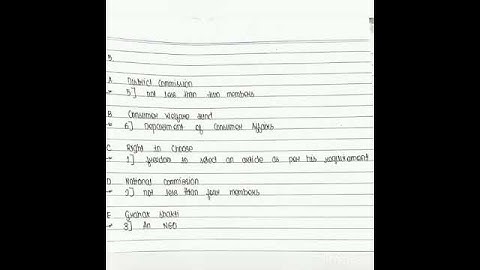 B.
A District Commission
→ 5] not less than two members
B Consumer Welfare Fund
→ 6] Department of Consumer Affairs
C Right to Choose
→ 1] freedom to select an article as per his requirement
D. National Commission
→ 2] not less than four members
E Grahak Shakti
→ 3] An NGO